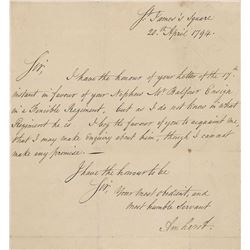 St James's Square
20th April 1794.
Sir,
I have the honour of your Letter of the 17th
instant in favour of your Nephew Mr Balfour Ensign
in a Fencible Regiment, but as I do not know in what
Regiment he is I beg the favour of you to acquaint me
that I may make enquiry about him, though I cannot
make any promise:—
I have the honour to be
Sir, Your most obedient, and
most humble Servant
Amherst.